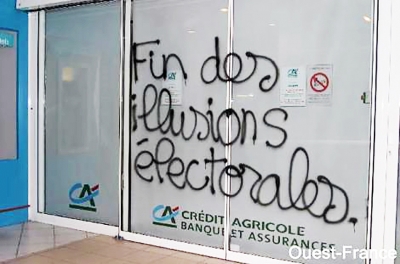 Fin des
illusions
électorales.
CRÉDIT AGRICOLE
BANQUE ET ASSURANCES
Ouest-France